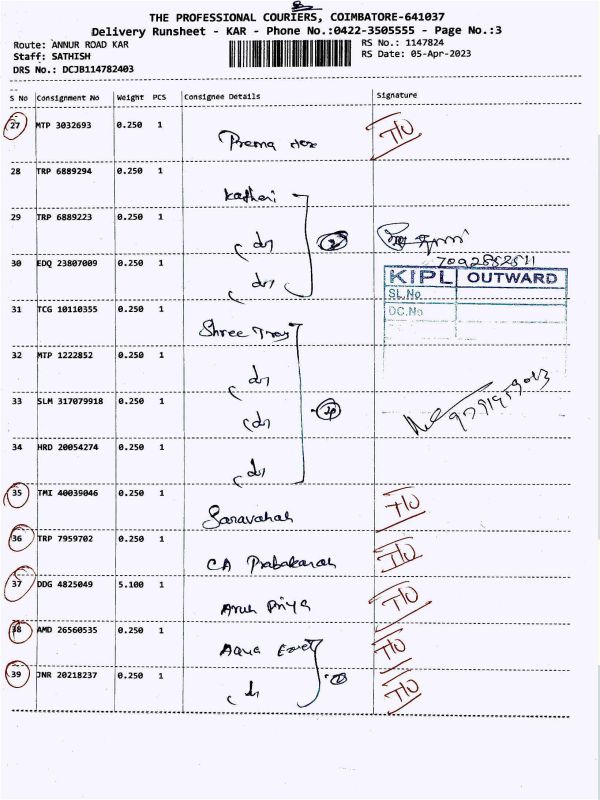 THE PROFESSIONAL COURIERS, COIMBATORE-641037
Delivery Runsheet - KAR - Phone No.:0422-3505555 - Page No.:3
Route: ANNUR ROAD KAR
RS No.: 1147824
Staff: SATHISH
RS Date: 05-Apr-2023
DRS No.: DCJB114782403
S No Consignment No Weight PCS Consignee Details Signature
27 MTP 3032693 0.250 1 T/O
Prema
28 TRP 6889294 0.250 1
Kathari
29 TRP 6889223 0.250 1
do
30 EDQ 23807009 0.250 1
do
KIPL OUTWARD
SL.No
DC.No
31 TCG 10110355 0.250 1
Shree Troy
32 MTP 1222852 0.250 1
do
33 SLM 317079918 0.250 1
do
34 HRD 20054274 0.250 1
do
35 TMI 40039046 0.250 1 T/O
Saravanan
36 TRP 7959702 0.250 1 T/O
CA Prabakaran
37 DDG 4825049 5.100 1 T/O
Arun Priya
38 AMD 26560535 0.250 1 T/O
Aqua
39 JNR 20218237 0.250 1 T/O
do